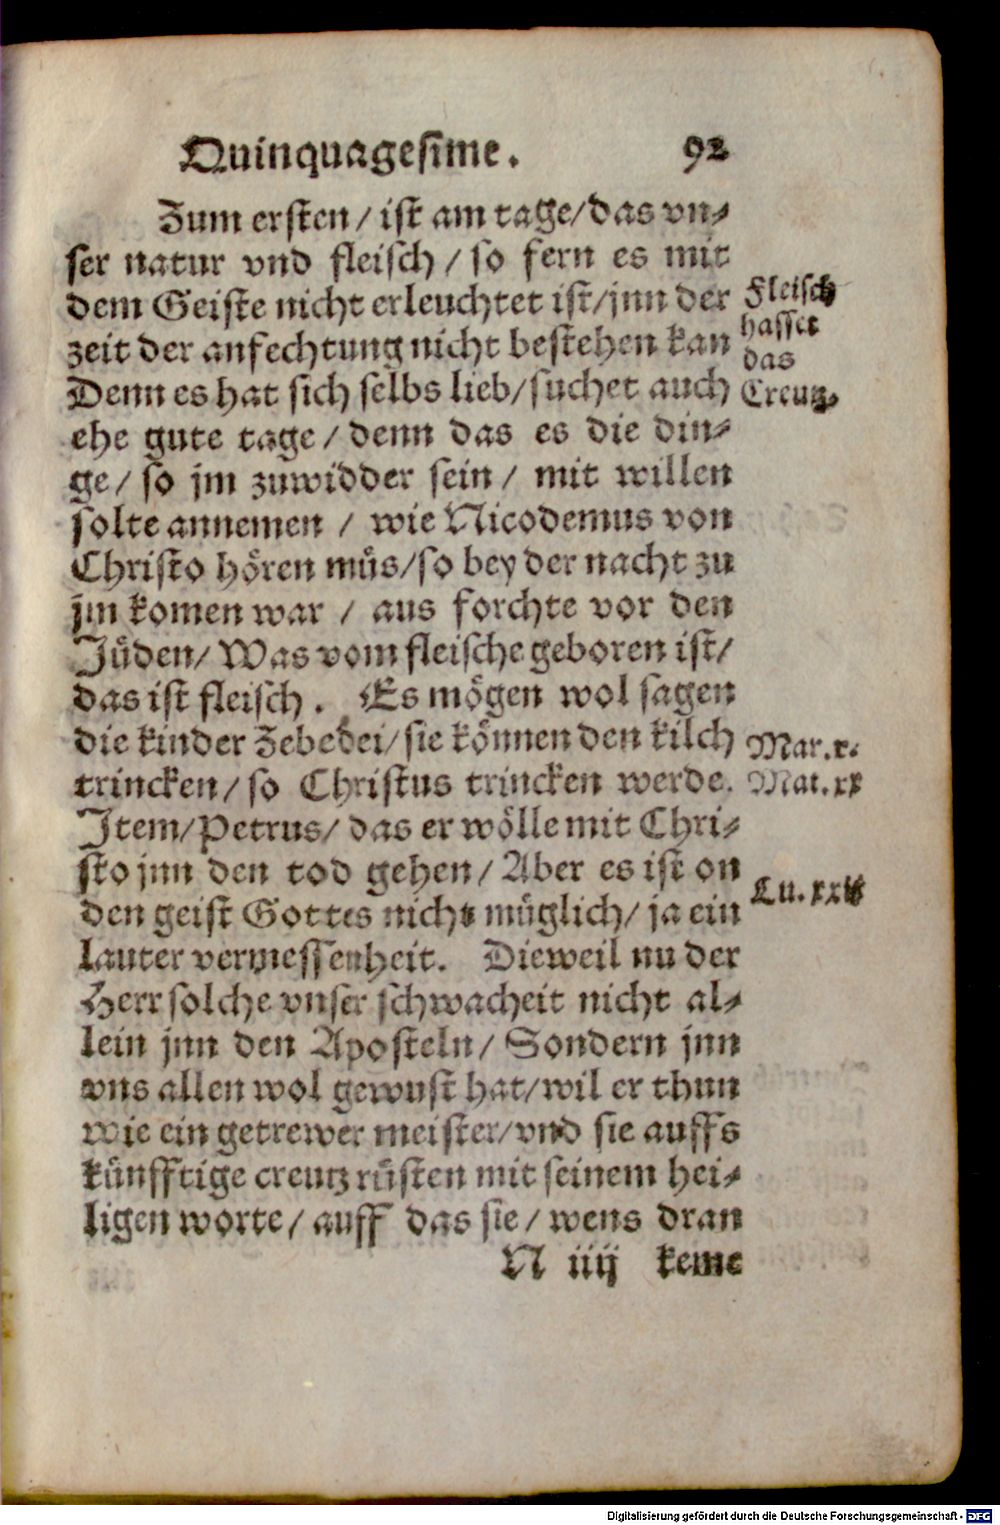 Quinquagesime. 92
Zum ersten / ist am tage/das vn⸗
ser natur vnd fleisch / so fern es mit
dem Geiste nicht erleuchtet ist/jnn der
zeit der anfechtung nicht bestehen kan
Denn es hat sich selbs lieb/suchet auch
ehe gute tage / denn das es die din⸗
ge / so jm zuwidder sein / mit willen
solte annemen / wie Nicodemus von
Christo hören müs/so bey der nacht zu
jm komen war / aus forchte vor den
Jüden/ Was vom fleische geboren ist/
das ist fleisch. Es mögen wol sagen
die kinder Zebedei/sie können den kilch
trincken / so Christus trincken werde.
Item/Petrus/ das er wölle mit Chri⸗
sto jnn den tod gehen / Aber es ist on
den geist Gottes nicht müglich/ ja ein
lauter vermessenheit. Dieweil nu der
Herr solche vnser schwacheit nicht al⸗
lein jnn den Aposteln / Sondern jnn
vns allen wol gewust hat/wil er thun
wie ein getrewer meister/vnd sie auffs
künfftige creutz rüsten mit seinem hei⸗
ligen worte / auff das sie / wens dran
N iiij keme
Fleisch
hasset
das
Creutz.
Mar.x.
Mat.xx
Lu.xxij
Digitalisierung gefördert durch die Deutsche Forschungsgemeinschaft - DFG